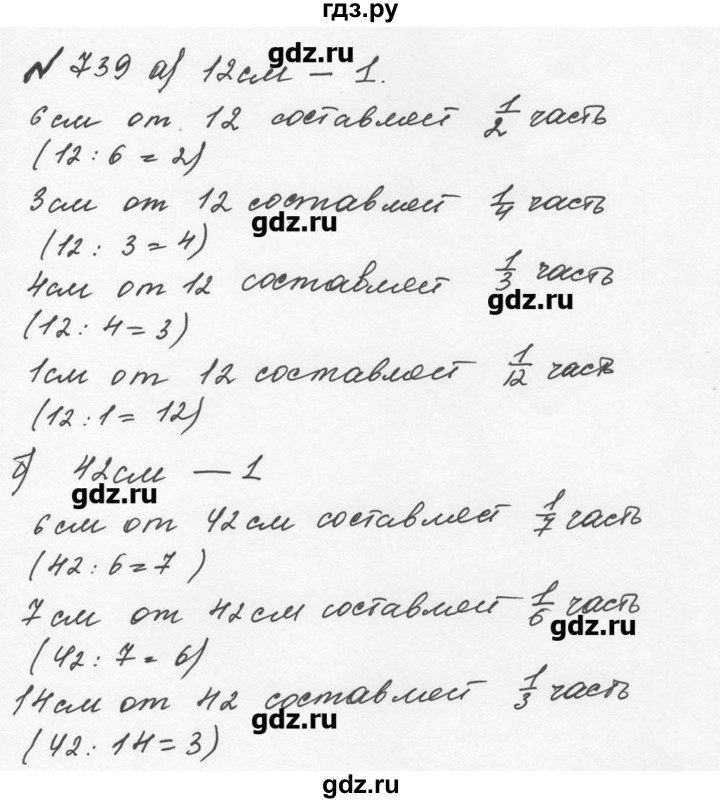 гдз.ру
№ 739 а) 12см – 1.
gdz.ru
6см от 12 составляет 1/2 часть
(12 : 6 = 2)
3см от 12 составляет 1/4 часть
gdz.ru
(12 : 3 = 4)
4см от 12 составляет 1/3 часть
gdz.ru
(12 : 4 = 3)
1см от 12 составляет 1/12 часть
(12 : 1 = 12)
б) 42см – 1
gdz.ru
6см от 42см составляет 1/7 часть
(42 : 6 = 7)
7см от 42см составляет 1/6 часть
gdz.ru
(42 : 7 = 6)
14см от 42 составляет 1/3 часть
gdz.ru
(42 : 14 = 3)
gdz.ru